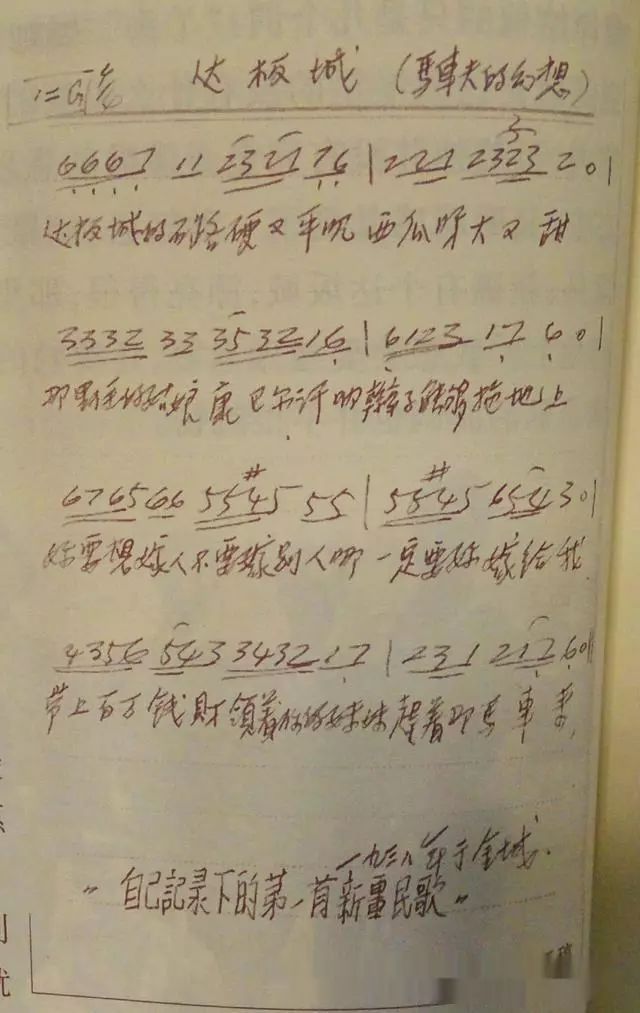 达板城 (馬車夫的幻想)
1=G 2/4
6667 11 2321 76 | 221 2323 2 0 |
达板城的石路硬又平呢 西瓜呀大又甜
3332 33 3532 16 | 6123 17 6 0 |
那里的姑娘康巴尔汗呐辫子能够拖地上
6765 66 55#45 55 | 55#45 654 3 0 |
你要想嫁人不要嫁别人哪 一定要你嫁给我
4356 543 3432 17 | 231 217 60 ||
带上百万钱財領着你的妹妹趕着那馬車来
一九三八年于金城.
"自己記录下的第一首新疆民歌"